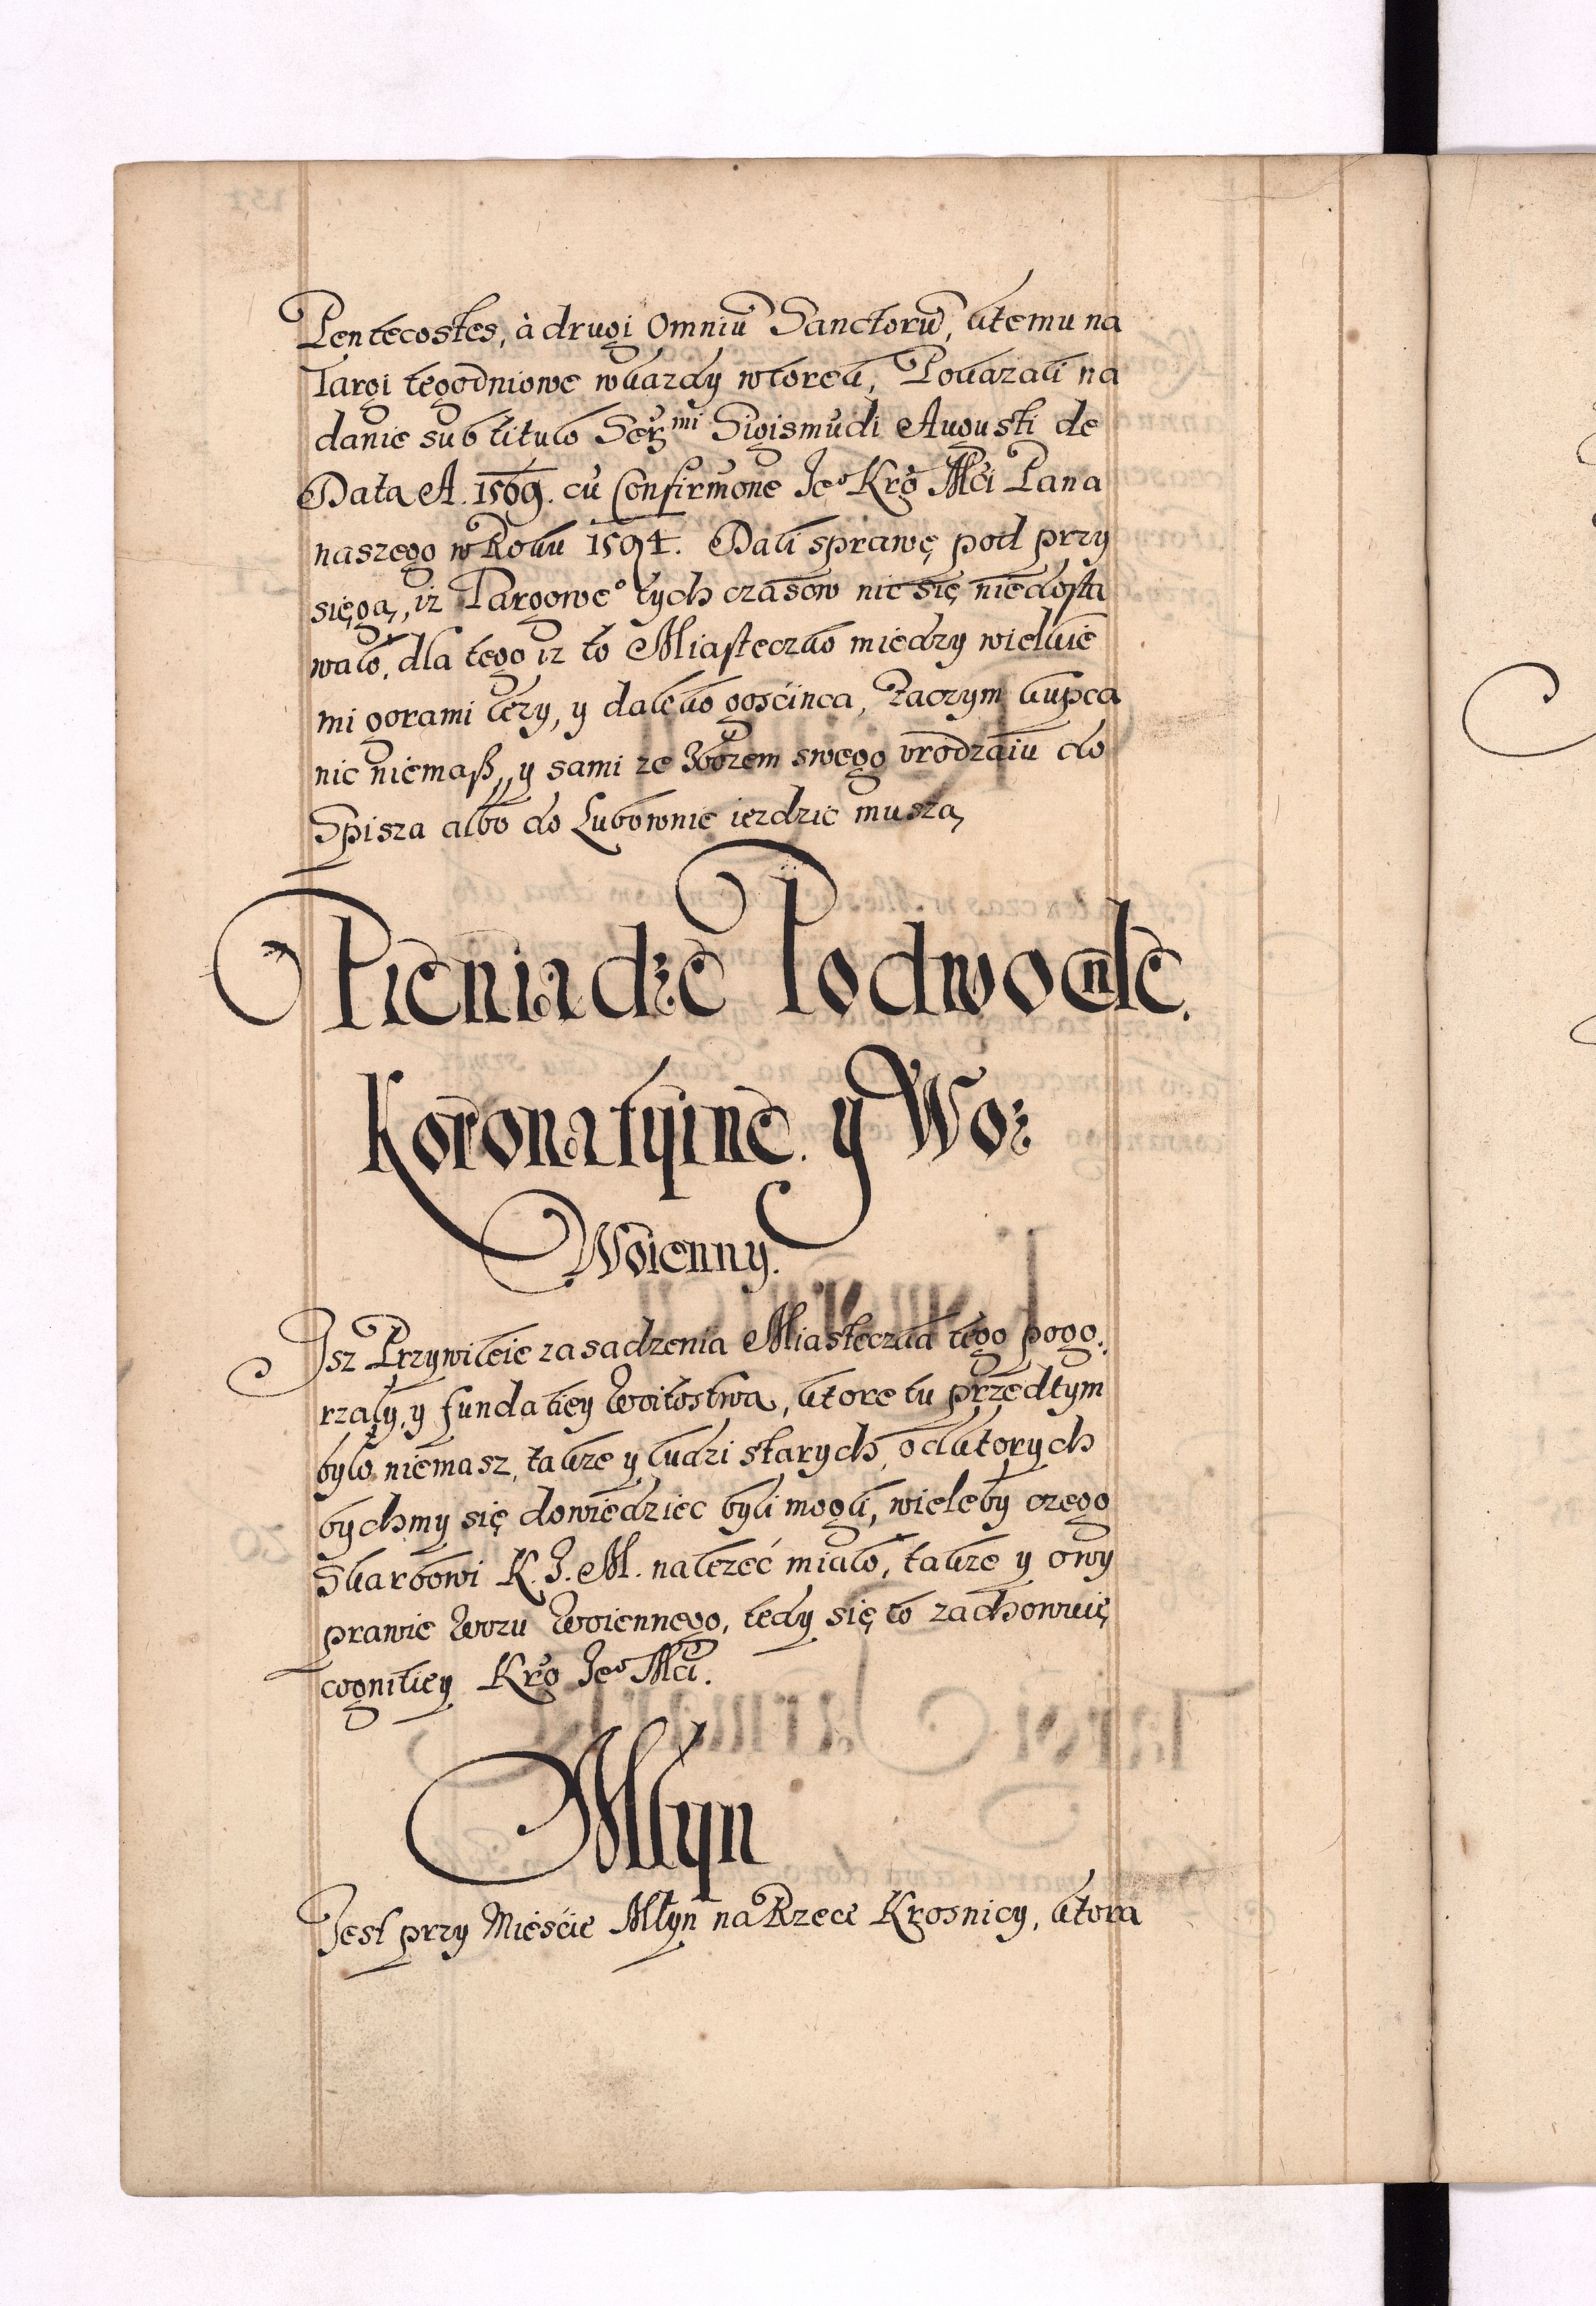 Pentecostes, à drugi Omniū Sanctorū, ktemu na
Targi tegodniowe wkazdy wtorek, Pokazali na
danie sub titulo Serᵐⁱ Sigismūdi Augusti de
Data A. 1569. cū Confirmone Jeº Krº Mći Pana
naszego w Roku 1594. Dali sprawę pod przy
sięgą, iz Targoweº tych czasow nic się niedosta
wało, dla tego iz to Miasteczko miedzy wielkie
mi gorami lezy, y daleko goscinca, Zaczym kupca
nic niemaß, y sami ze Zbozem swego vrodzaiu do
Spisza albo do Lubownie iezdzic muszą
Pieniądze Podwodne.
Koronatijne. y Woz
Woienny.
Isz Przywileie zasadzenia Miasteczka tego pogo:
rzały, y fundatiey Woitostwa, ktore tu przedtym
było niemasz, takze y ludzi starych, od ktorych
bychmy się dowiedziec byli mogli, wieleby czego
Skarbowi K. J. M. nalezeć miało, takze y owy
prawie Wozu Woiennego, tedy się to zachowuię
cognitiey Krº Jeº Mći.
Młyn
Jest przy Mieście Młyn na Rzece Krosnicy, ktora